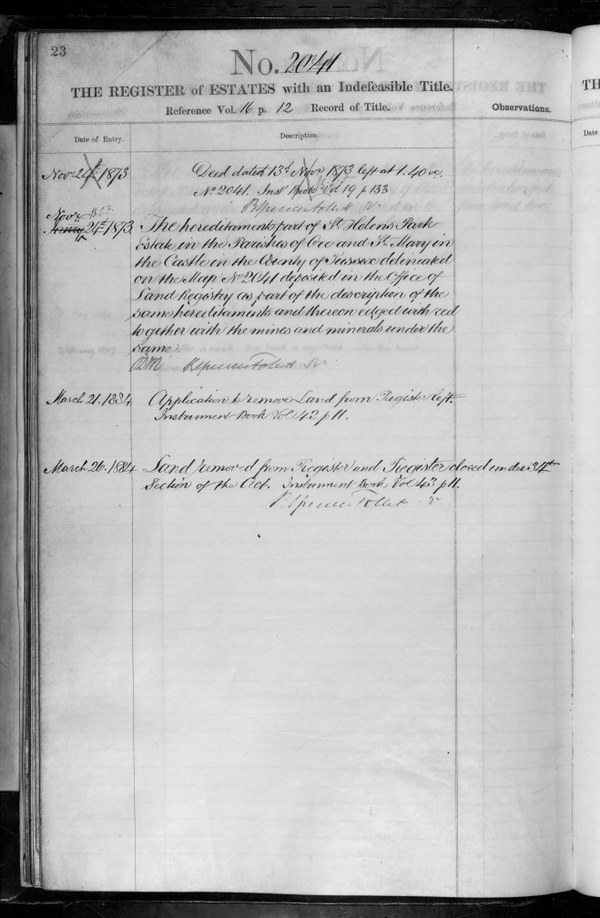 23
No. 2041
THE REGISTER of ESTATES with an Indefeasible Title.
Reference Vol. 16 p. 12 Record of Title.
Observations.
Date of Entry.
Description.
Nov 24 1873
Deed dated 13th Nov 1873 left at 1.40 oc.
No 2041. Inst Book Vol 19 p 133
Novr
24th 1873
The hereditaments part of St. Helens Park
Estate in the Parishes of Ore and St. Mary in
the Castle in the County of Sussex delineated
on the Map No 2041 deposited in the Office of
Land Registry as part of the description of the
same hereditaments and thereon edged with red
together with the mines and minerals under the
same
March 21. 1884
Application to remove Land from Register left.
Instrument Book Vol 43 p 11.
March 26. 1884
Land removed from Register and Register closed under 34th
Section of the Act. Instrument Book Vol 43 p 11.
TH
Date